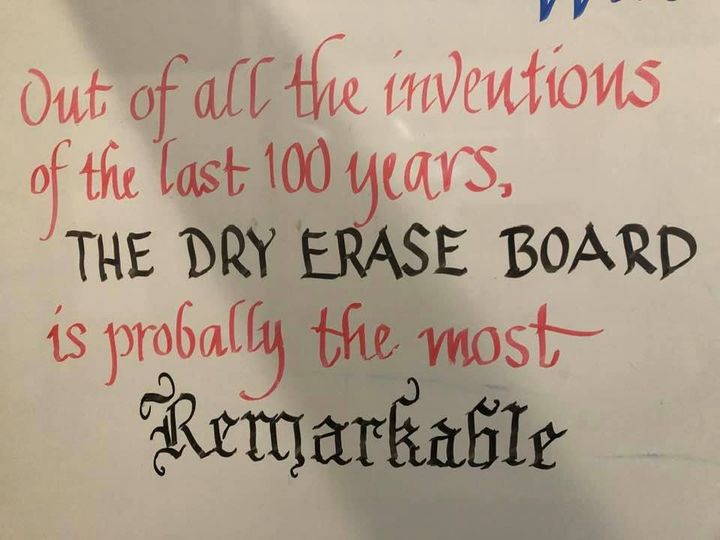 Out of all the inventions
of the last 100 years,
THE DRY ERASE BOARD
is probally the most
Remarkable